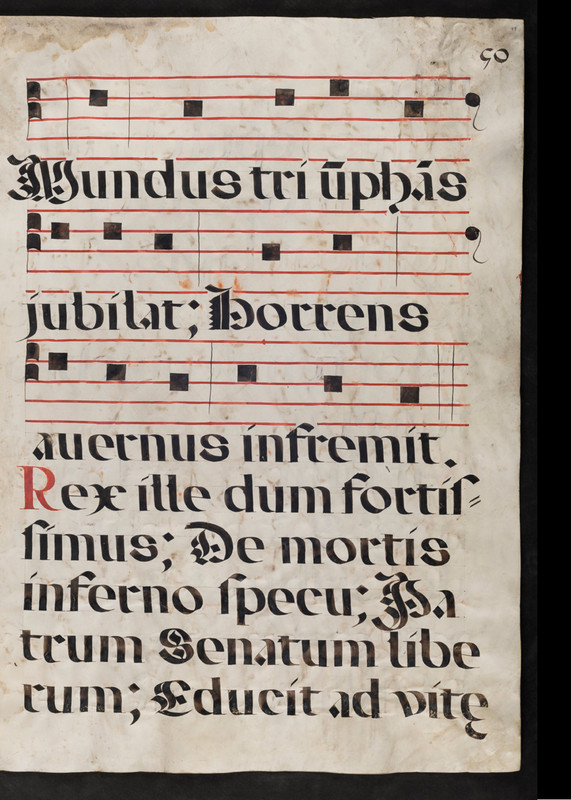 50
Mundus tri ūphās
jubilat; Horrens
auernus infremit.
Rex ille dum fortiſ=
ſimus; De mortis
inferno ſpecu; Pa
trum Senatum libe
rum; Educit ad vitę